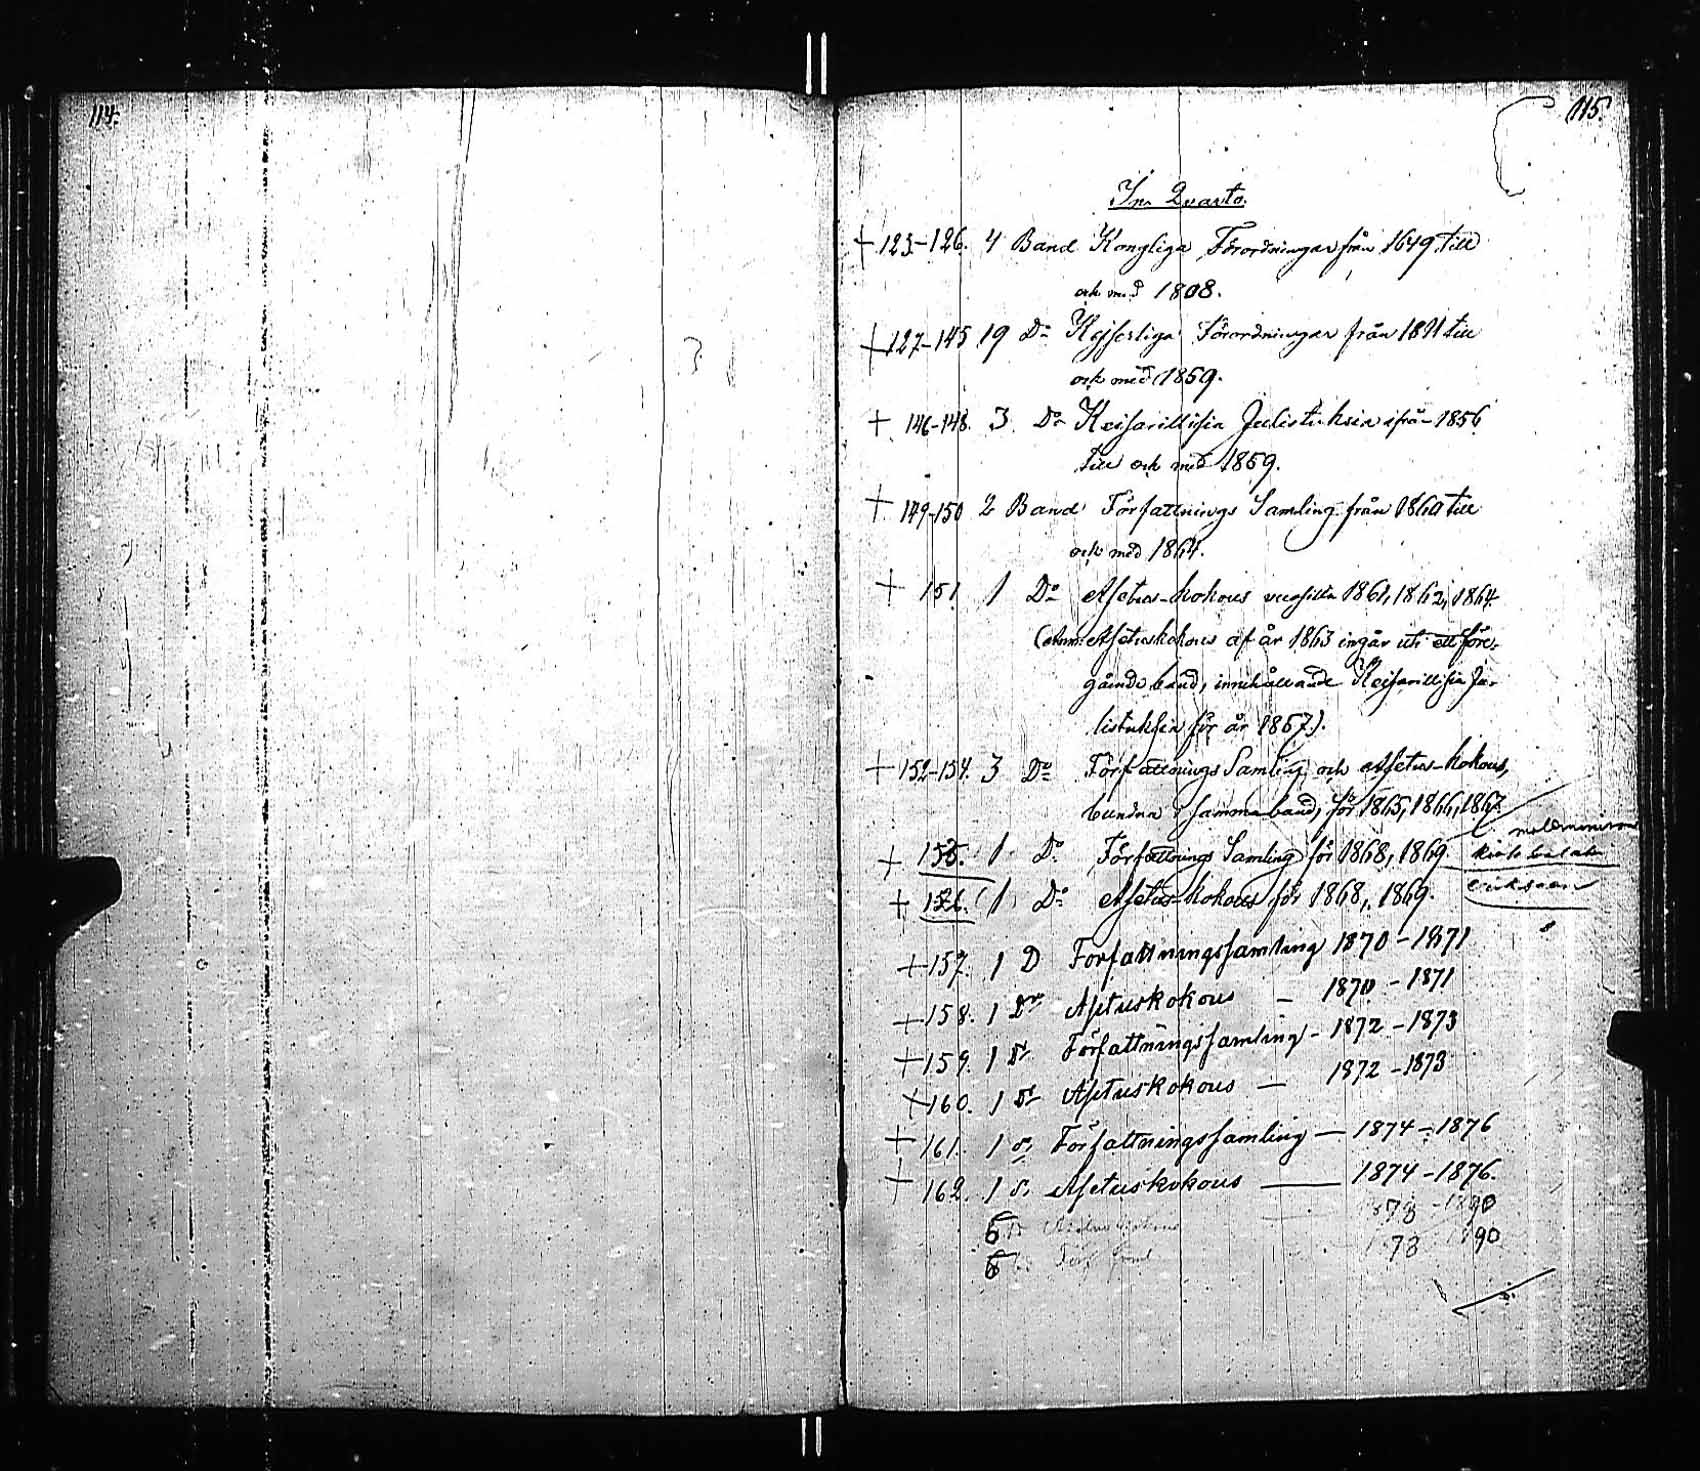 114.
115.
In Quarto.
+ 123-126. 4 Band Kongliga Förordningar från 1649 till
och med 1808.
+ 127-145 19 Do Kejserliga Förordningar från 1811 till
och med 1859.
+ 146-148. 3. Do Keisarillisia Julistuksia ifrån 1856
till och med 1859.
+ 149-150 2 Band Författnings Samling från 1860 till
och med 1864.
+ 151. 1 Do Asetus-kokous vuosilta 1861, 1862, 1864.
(Anm: Asetuskokous af år 1863 ingår uti ett före-
gående band, innehållande Keisarillisia Ju-
listuksia för år 1857).
+ 152-154. 3 Do Författnings Samling och Asetus-kokous,
bundna i samma band, för 1865, 1866, 1867
+ 155. 1 Do Författnings Samling för 1868, 1869.
+ 156. 1 Do Asetus-kokous för 1868, 1869.
+ 157. 1 D Författningssamling 1870-1871
+ 158. 1 Do Asetuskokous - 1870-1871
+ 159. 1 Do Författningssamling - 1872-1873
+ 160. 1 Do Asetuskokous - 1872-1873
+ 161. 1 Do Författningssamling - 1874-1876
+ 162. 1 Do Asetuskokous - 1874-1876.
6 1878-1890
6 1878 1890